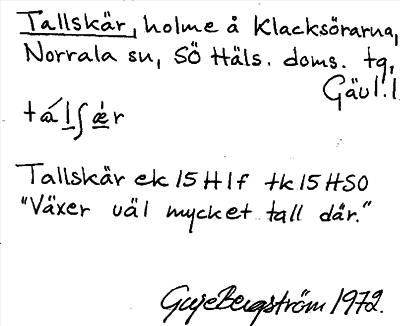 Tallskär, holme å Klacksörarna,
Norrala sn, SÖ Häls. doms. tg,
Gävl.l
tálʃǽr
Tallskär ek 15 H1f tk 15 H50
"Växer väl mycket tall där."
Bergström 1972.